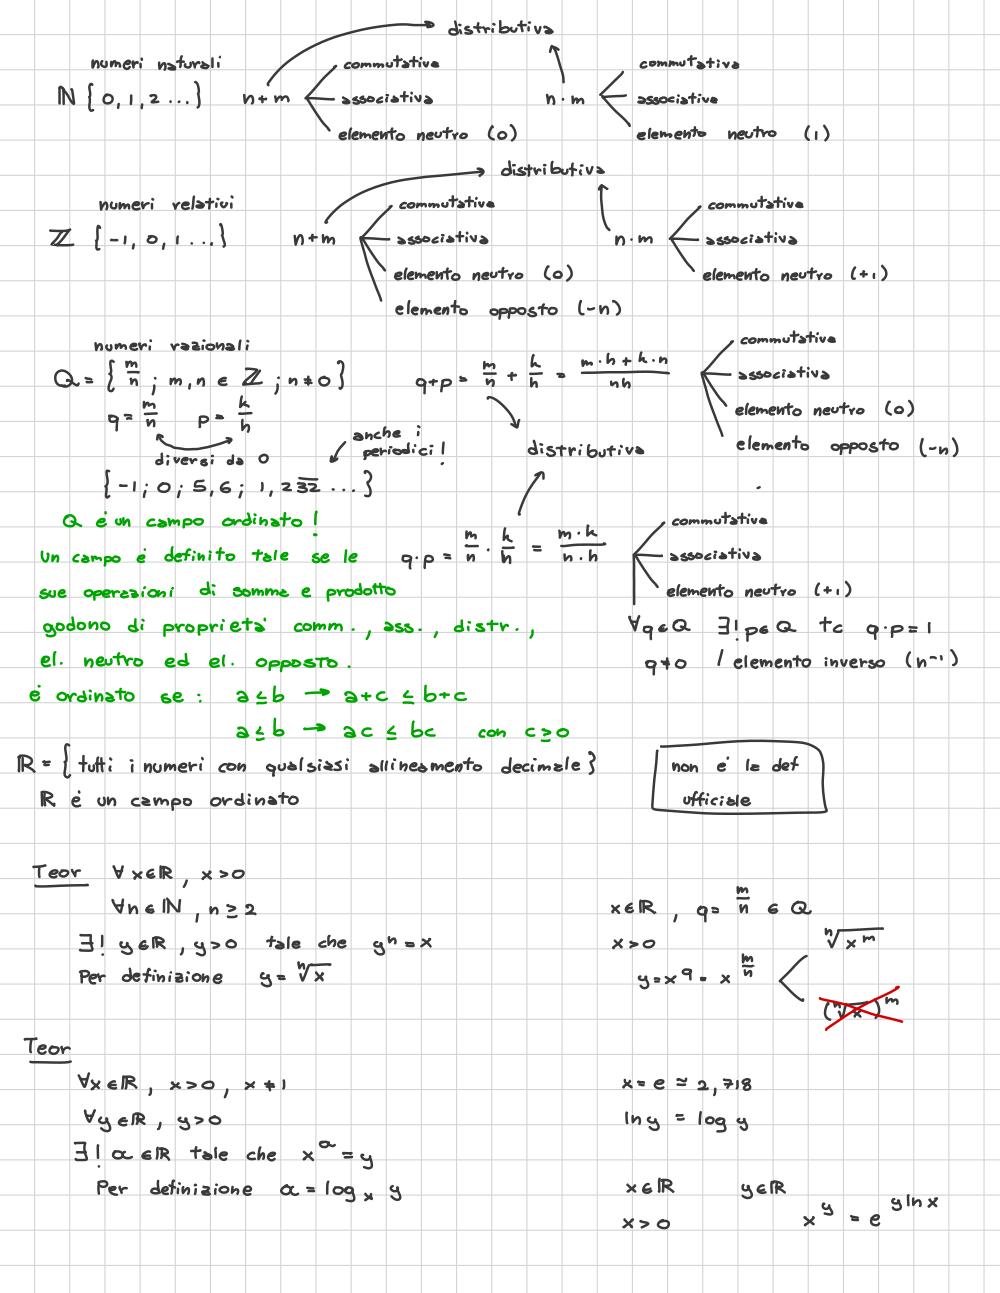 distributiva
numeri naturali
ℕ { 0, 1, 2 ... }
n+m
commutativa
associativa
elemento neutro (0)
n · m
commutativa
associativa
elemento neutro (1)
distributiva
numeri relativi
ℤ { -1, 0, 1 ... }
n+m
commutativa
associativa
elemento neutro (0)
elemento opposto (-n)
n · m
commutativa
associativa
elemento neutro (+1)
numeri razionali
Q = { m/n ; m, n ∈ ℤ ; n ≠ 0 }
q = m/n p = k/h
diversi da 0
anche i
periodici !
{ -1 ; 0 ; 5,6 ; 1,2\overline{32} ... }
q+p = m/n + k/h = (m·h + k·n)/nh
commutativa
associativa
elemento neutro (0)
elemento opposto (-n)
distributiva
q·p = m/n · k/h = (m·k)/(n·h)
commutativa
associativa
elemento neutro (+1)
∀q∈Q ∃! p∈Q tc q·p=1
q≠0 / elemento inverso (n⁻¹)
Q é un campo ordinato !
un campo é definito tale se le
sue operazioni di somma e prodotto
godono di proprietà comm., ass., distr.,
el. neutro ed el. opposto.
é ordinato se : a ≤ b → a+c ≤ b+c
a ≤ b → ac ≤ bc con c ≥ 0
ℝ = { tutti i numeri con qualsiasi allineamento decimale }
ℝ é un campo ordinato
non é la def
ufficiale
Teor ∀x∈ℝ, x>0
∀n∈ℕ, n ≥ 2
∃! y∈ℝ, y>0 tale che yⁿ = x
Per definizione y = ⁿ√x
x∈ℝ, q = m/n ∈ Q
x>0
y = x^q = x^(m/n)
ⁿ√(x^m)
(ⁿ√x)^m
Teor
∀x∈ℝ, x>0, x≠1
∀y∈ℝ, y>0
∃! α∈ℝ tale che x^α = y
Per definizione α = log_x y
x = e ≃ 2,718
ln y = log y
x∈ℝ y∈ℝ
x>0 x^y = e^(y ln x)